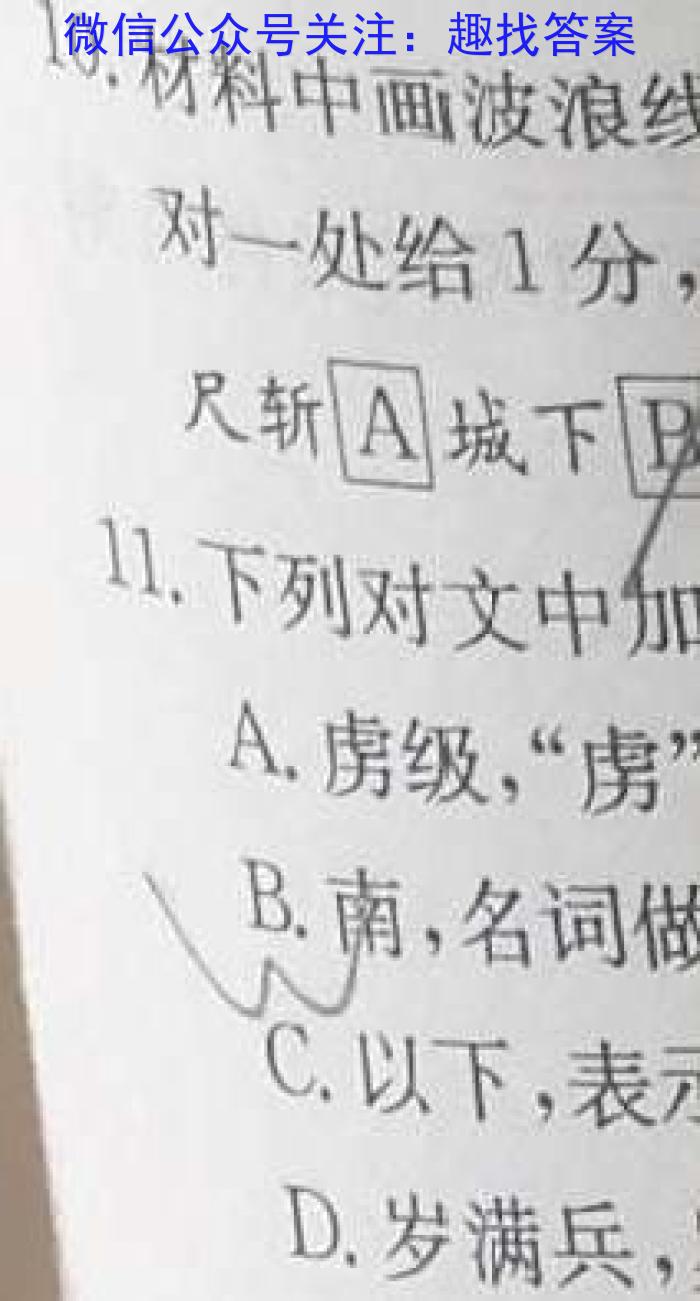 微信公众号关注：趣找答案
10.材料中画波浪线
对一处给1分，
尺斩 A 城下 B
11.下列对文中加
A.虏级，“虏”
B.南，名词做
C.以下，表示
D.岁满兵，